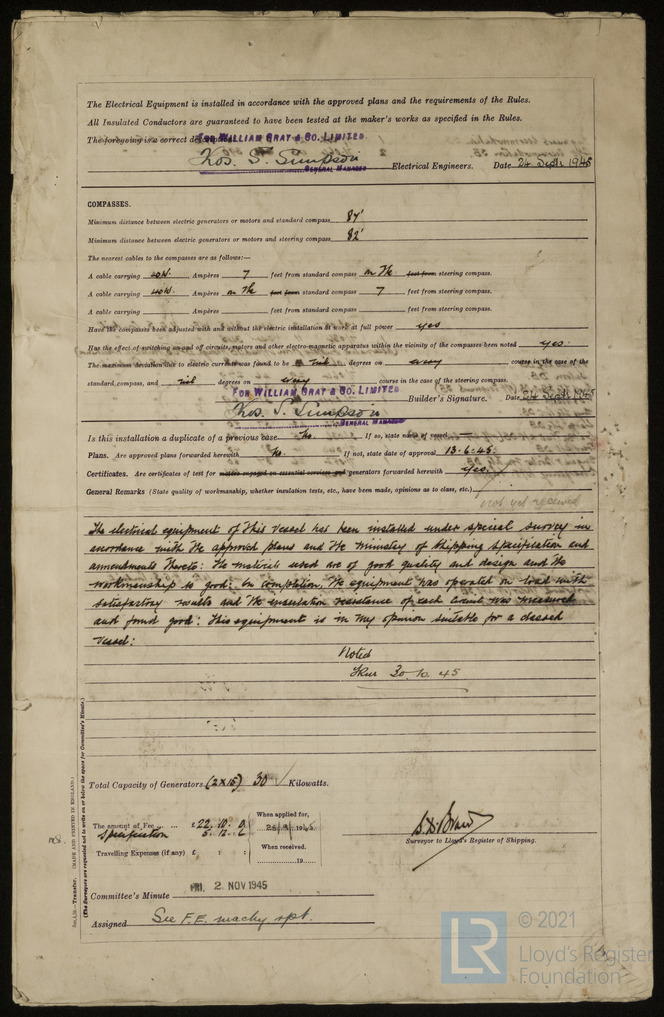 The Electrical Equipment is installed in accordance with the approved plans and the requirements of the Rules.
All Insulated Conductors are guaranteed to have been tested at the maker's works as specified in the Rules.
The foregoing is a correct
FOR WILLIAM GRAY & CO. LIMITED
Thos. S. Simpson Electrical Engineers. Date 24 Septr 1945
GENERAL MANAGER
COMPASSES.
Minimum distance between electric generators or motors and standard compass 84'
Minimum distance between electric generators or motors and steering compass 82'
The nearest cables to the compasses are as follows:—
A cable carrying 40W Ampères 7 feet from standard compass on the feet from steering compass.
A cable carrying 40W. Ampères on the feet from standard compass 7 feet from steering compass.
A cable carrying Ampères feet from standard compass feet from steering compass.
Have the compasses been adjusted with and without the electric installation at work at full power yes
Has the effect of switching on and off circuits, motors and other electro-magnetic apparatus within the vicinity of the compasses been noted yes.
The maximum deviation due to electric currents was found to be nil degrees on every course in the case of the
standard compass, and nil degrees on every course in the case of the steering compass.
FOR WILLIAM GRAY & CO. LIMITED
Thos. S. Simpson Builder's Signature. Date 24 Septr 1945
GENERAL MANAGER
Is this installation a duplicate of a previous case No. If so, state name of vessel —
Plans. Are approved plans forwarded herewith No. If not, state date of approval 13.6.45.
Certificates. Are certificates of test for motors engaged on essential services and generators forwarded herewith Yes.
General Remarks (State quality of workmanship, whether insulation tests, etc., have been made, opinions as to class, etc.)
not yet received
The electrical equipment of this vessel has been installed under special survey in
accordance with the approved plans and the ministry of shipping specification and
amendments thereto: The material used are of good quality and design and the
workmanship is good: On completion the equipment was operated on load with
satisfactory results and the insulation resistance of each circuit was measured
and found good: This equipment is in my opinion suitable for a classed
vessel:
Noted
30.10.45
Total Capacity of Generators (2x15) 30 Kilowatts.
The amount of Fee ... ... £ 22 : 10 : 0
Specification 5. 12. 6
When applied for,
25.9.1945.
Travelling Expenses (if any) £ : :
When received.
19
Surveyor to Lloyd's Register of Shipping.
Committee's Minute FRI. 2 NOV 1945
Assigned See F.E. machy rpt.
(MADE AND PRINTED IN ENGLAND.)
(The Surveyors are requested not to write on or below the space for Committee's Minute.)
LR © 2021
Lloyd's Register
Foundation